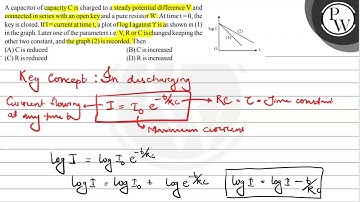 A capacitor of capacity C is charged to a steady potential difference V and
connected in series with an open key and a pure resistor 'R'. At time t = 0, the
key is closed. If I = current at time t, a plot of log I against 't' is as shown in (1)
in the graph. Later one of the parameters i.e. V, R or C is changed keeping the
other two constant, and the graph (2) is recorded. Then
(A) C is reduced (B) C is increased
(C) R is reduced (D) R is increased
log I
(2)
(1)
t
PW
Key Concept : In discharging
Current flowing at any time t
I = I₀ e^(-t/RC)
RC = τ = Time constant
Maximum current
log I = log I₀ e^(-t/RC)
log I = log I₀ + log e^(-t/RC)
log I = log I - t/RC